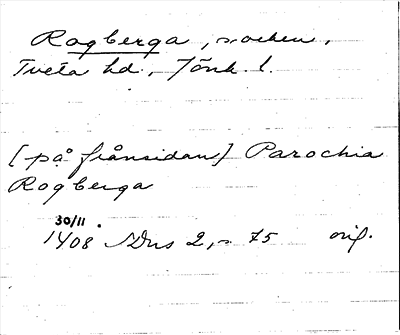 Rogberga, socken,
Tveta hd., Jönk. l.
[på frånsidan] Parochia
Rogberga
30/11
1408 SDns 2, s 75 orig.